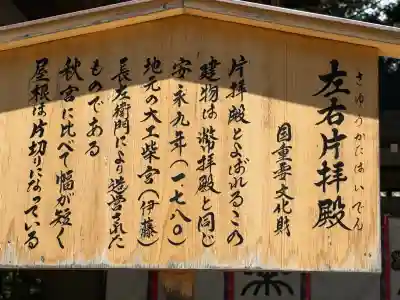 左右片拝殿
さゆうかたはいでん
国重要文化財
片拝殿とよばれるこの
建物は幣拝殿と同じ
安永九年(一七八〇)
地元の大工柴宮(伊藤)
長左衛門により造営された
ものである
秋宮に比べて幅が短く
屋根は片切りになっている